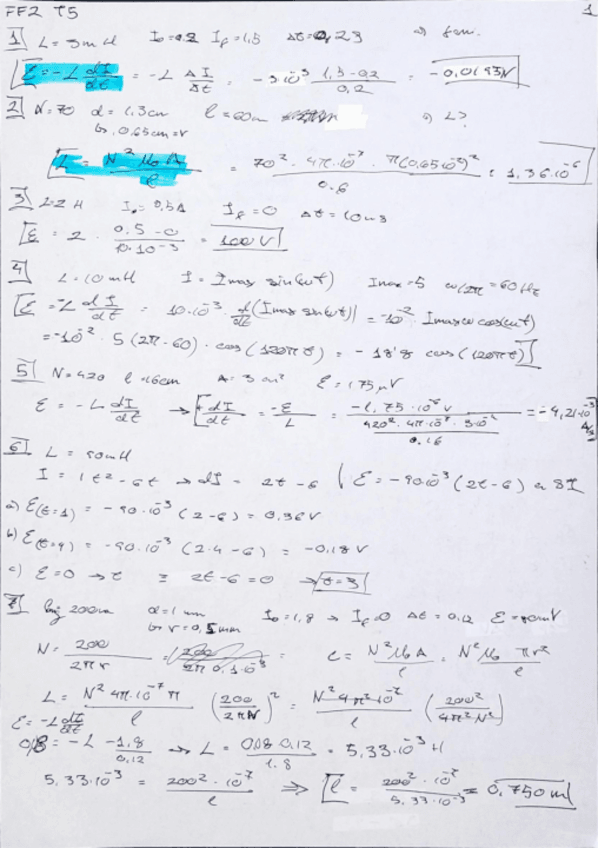 FF2 T5 1
1 L = 3mH I₀ = 0.2 I_f = 1,5 Δt = 0,23 a) fem.
ε = -L dI/dt = -L ΔI/Δt = -3·10⁻³ (1,5-0,2)/0,2 = -0,0195V
2 N=70 d=1,3cm l=60cm a) L?
↳ 0,65cm=r
L = N² μ₀ A / l = 70² · 4π·10⁻⁷ · π(0,65·10⁻²)² / 0.6 = 1,36·10⁻⁶
3 L=2 H I₀ = 0,5A I_f = 0 Δt = 10ms
ε = 2 · (0.5-0)/(10·10⁻³) = 100 V
4 L=10mH I = Imax sin(ωt) Imax=5 ω/2π = 60Hz
ε = -L dI/dt = 10·10⁻³ · d/dt (Imax sin ωt) = -10⁻² Imax ω cos(ωt)
= -10⁻² · 5 (2π·60) · cos(120πt) = -18'8 cos(120πt)
5 N=420 l=16cm A=3cm² ε=175μV
ε = -L dI/dt → dI/dt = -ε/L = -1,75·10⁻⁶ V / (420²·4π·10⁻⁷·3·10⁻⁴ / 0.16) = -4,21·10⁻³ A/s
6 L = 90mH
I = 1t²-6t → dI = 2t-6 ε = -90·10⁻³ (2t-6) SI
a) ε(t=1) = -90·10⁻³ (2-6) = 0,36V
b) ε(t=4) = -90·10⁻³ (2·4-6) = -0,18V
c) ε=0 → t = 2t-6=0 → t=3
7 200cm d=1mm I₀=1,8 → I_f=0 Δt=0,12 ε=80mV
↳ r=0,5mm
N = 200/2πr = = L = N²μ₀A/l = N²μ₀ πr²/l
L = N² 4π·10⁻⁷ π / l (200/2πN)² = N² 4π²·10⁻⁷ / l (200²/4π²N²)
ε = -L dI/dt
0,8 = -L -1,8/0,12 → L = 0,08·0,12/1.8 = 5,33·10⁻³ H
5,33·10⁻³ = 200²·10⁻⁷/l ⇒ l = 200²·10⁻⁷/5,33·10⁻³ = 0,750 m